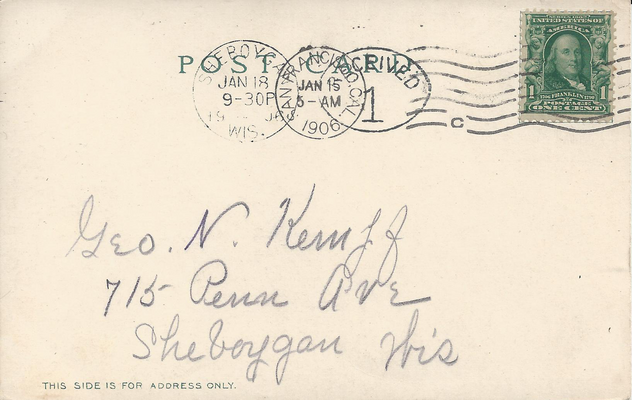 POST CARD
SHEBOYGAN
JAN 18
9-30P
1906
WIS.
SAN FRANCISCO, CAL.
JAN 15
5-AM
1906
RECEIVED
1
C
SERIES 1902
UNITED STATES OF
AMERICA
1 FRANKLIN 1
POSTAGE
ONE CENT
Geo. N. Kempf
715 Penn Ave
Sheboygan Wis
THIS SIDE IS FOR ADDRESS ONLY.